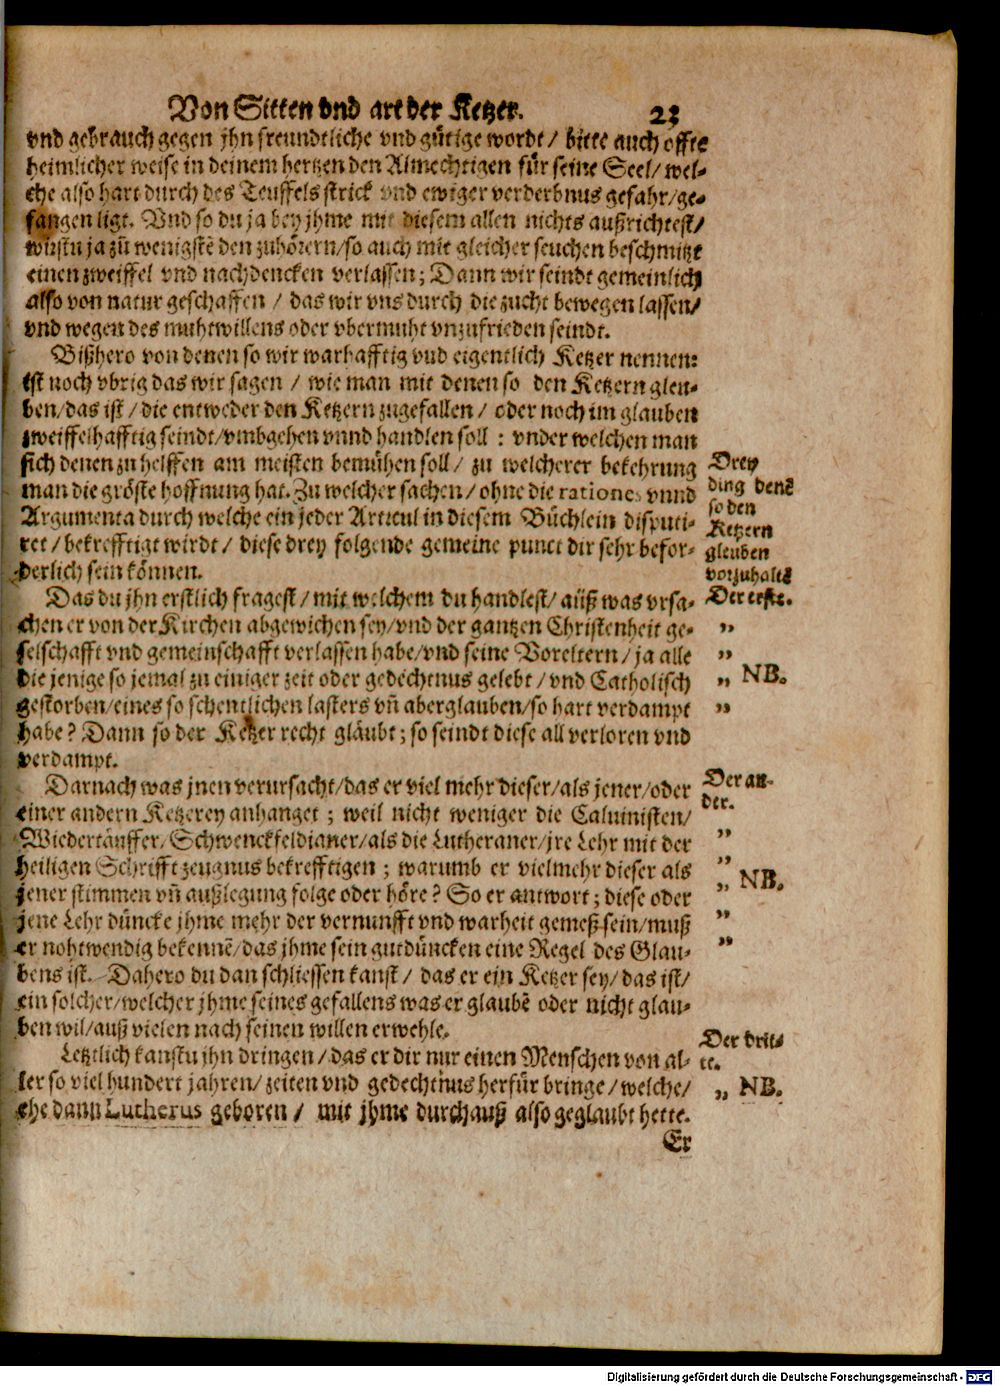 Von Sitten vnd art der Ketzer. 23
vnd gebrauch gegen jhn freundtliche vnd gütige wordt / bitte auch offte
heimlicher weise in deinem hertzen den Almechtigen für seine Seel / wel-
che also hart durch des Teuffels strick vnd ewiger verderbnus gefahr / ge-
fangen ligt. Vnd so du ja bey jhme mit diesem allen nichts außrichtest /
würstu ja zũ wenigstẽ den zuhörern / so auch mit gleicher seuchen beschmitzt
einen zweiffel vnd nachdencken verlassen; Dann wir seindt gemeinlich
also von natur geschaffen / das wir vns durch die zucht bewegen lassen /
vnd wegen des muhtwillens oder vbermuht vnzufrieden seindt.
Bißhero von denen so wir warhafftig vnd eigentlich Ketzer nennen:
ist noch vbrig das wir sagen / wie man mit denen so den Ketzern gleu-
ben / das ist / die entweder den Ketzern zugefallen / oder noch im glauben
zweiffelhafftig seindt / vmbgehen vnnd handlen soll : vnder welchen man
sich denen zu helffen am meisten bemühen soll / zu welcherer bekehrung
man die gröste hoffnung hat. Zu welcher sachen / ohne die rationes vnnd
Argumenta durch welche ein jeder Articul in diesem Büchlein disputi-
ret / bekrefftigt wirdt / diese drey folgende gemeine punct dir sehr befor-
derlich sein können.
Drey
ding denẽ
so den
Ketzern
gleuben
vorzuhaltẽ
Das du jhn erstlich fragest / mit welchem du handlest / auß was vrsa-
chen er von der Kirchen abgewichen sey / vnd der gantzen Christenheit ge-
selschafft vnd gemeinschafft verlassen habe / vnd seine Voreltern / ja alle
die jenige so jemal zu einiger zeit oder gedechtnus gelebt / vnd Catholisch
gestorben / eines so schentlichen lasters vñ aberglauben / so hart verdampt
habe? Dann so der Ketzer recht gläubt; so seindt diese all verloren vnd
verdampt.
Der erste.
„
„
„ NB.
„
Darnach was jnen verursacht / das er viel mehr dieser / als jener / oder
einer andern Ketzerey anhanget ; weil nicht weniger die Caluinisten /
Wiedertäuffer / Schwenckfeldianer / als die Lutheraner / jre Lehr mit der
heiligen Schrifft zeugnus bekrefftigen ; warumb er vielmehr dieser als
jener stimmen vñ außlegung folge oder höre? So er antwort; diese oder
jene Lehr düncke jhme mehr der vernunfft vnd warheit gemeß sein / muß
er nohtwendig bekennẽ / das jhme sein gutdüncken eine Regel des Glau-
bens ist. Dahero du dan schliessen kanst / das er ein Ketzer sey / das ist /
ein solcher / welcher jhme seines gefallens was er glaubẽ oder nicht glau-
ben wil / auß vielen nach seinen willen erwehle.
Der an-
der.
„
„
„ NB.
„
„
Letztlich kanstu jhn dringen / das er dir nur einen Menschen von al-
ler so viel hundert jahren / zeiten vnd gedechtnus herfür bringe / welche /
ehe dann Lutherus geboren / mit jhme durchauß also geglaubt hette.
Der drit-
te.
„ NB.
Er
Digitalisierung gefördert durch die Deutsche Forschungsgemeinschaft - DFG